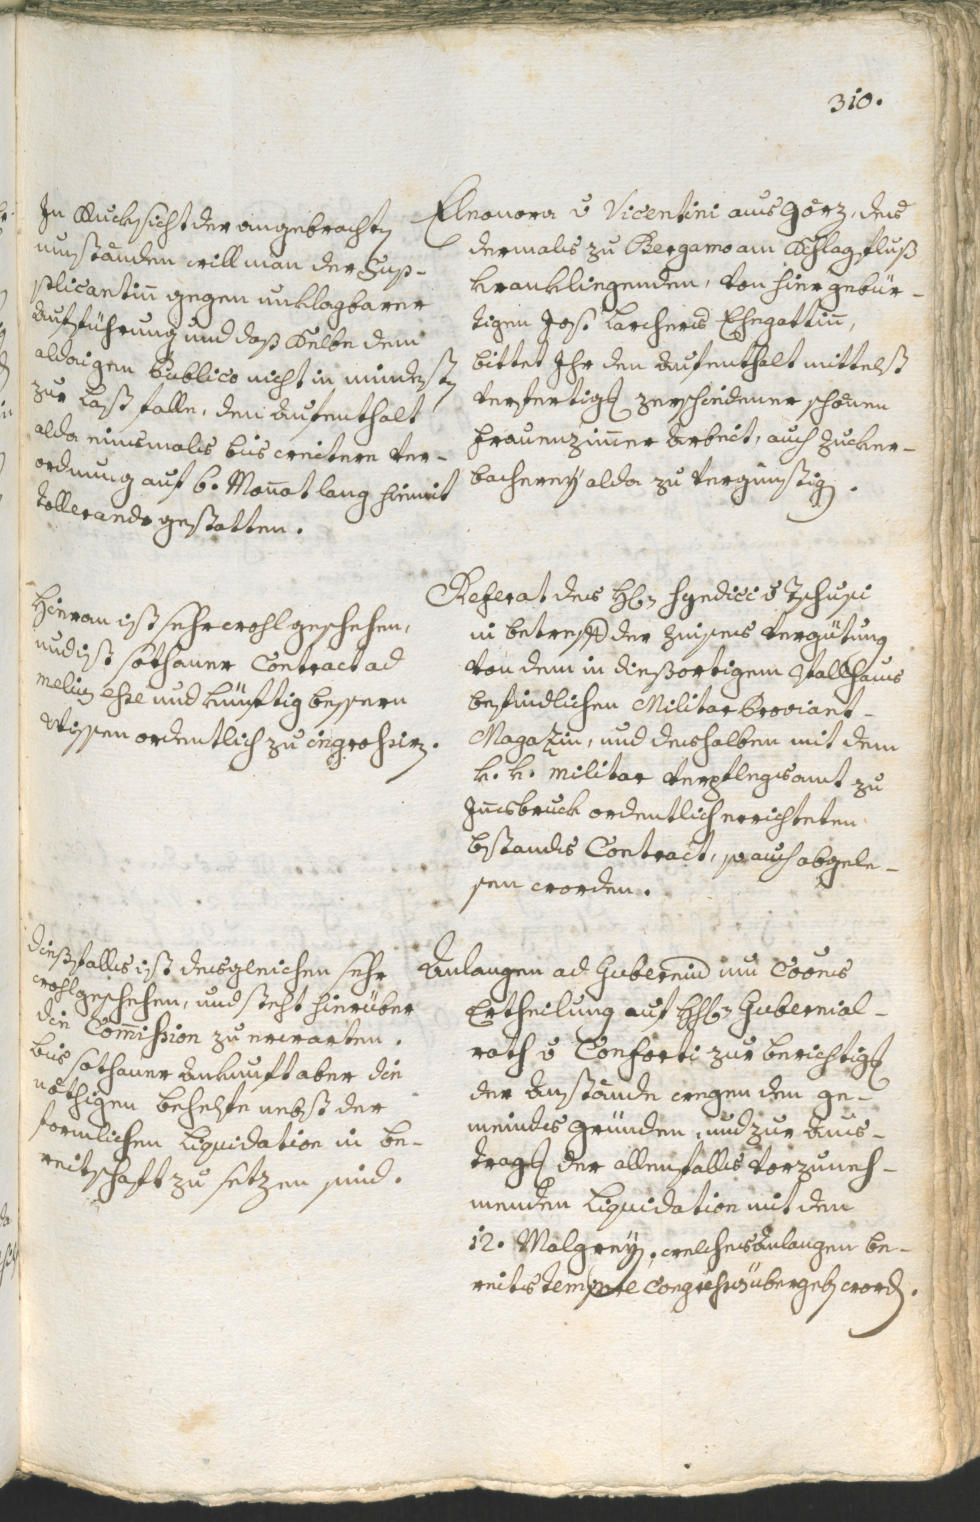 310.
In Rucksicht der angebrachten
umständen will man der Sup-
plicantin gegen unklagbarer
Aufführung und daß Selbe dem
aldaigen Publico nicht in mindesten
zur Last falle, den Aufenthalt
alda einsmals bis weitere Ver-
ordnung auf 6. Monat lang hiemit
tollerando gestatten.
Eleonora v Vicentini aus Görz, des
dermals zu Bergamo am Schlagfluß
krankliegenden, von hier gebür-
tigen Jos: Larchers Ehegattin,
bittet Ihr den Aufenthalt mittelst
Verfertigg verschiedener schönen
Frauenzimer Arbeit, auch Zucker-
bacherey alda zu vergünstigen.
Hieran ist sehr wohl geschehen,
und ist sothaner Contract ad
melius esse und künftig bessern
Wissen ordentlich zu ingrossirn.
Referat des H: Syndici v Tschusi
in betreff der Zinses Vergütung
von dem in diesortigem Ballhaus
befindlichen Militar Proviant-
Magazin, und deshalben mit dem
k. k. militar Verpflegsamt zu
Innsbruck ordentlich errichteten
bstands Contract, so auch abgele-
sen worden.
Diesfalls ist desgleichen sehr
wohl geschehen, und steht hierüber
die Commission zu erwarten.
bis sothaner Ankunft aber die
nöthigen behelfe nebst der
formlichen Liquidation in be-
reitschaft zu setzen sind.
Anlangen ad Gubernium um Coons
Ertheilung auf H: Gubernial-
rath v Conforti zur berichtigg
der Anstände wegen den ge-
meinds gründen, und zur Aus-
tragg der allenfalls vorzuneh-
menden Liquidation mit den
12. Malgreyen, welches Anlangen be-
reits tempore congruo übergeben worden.